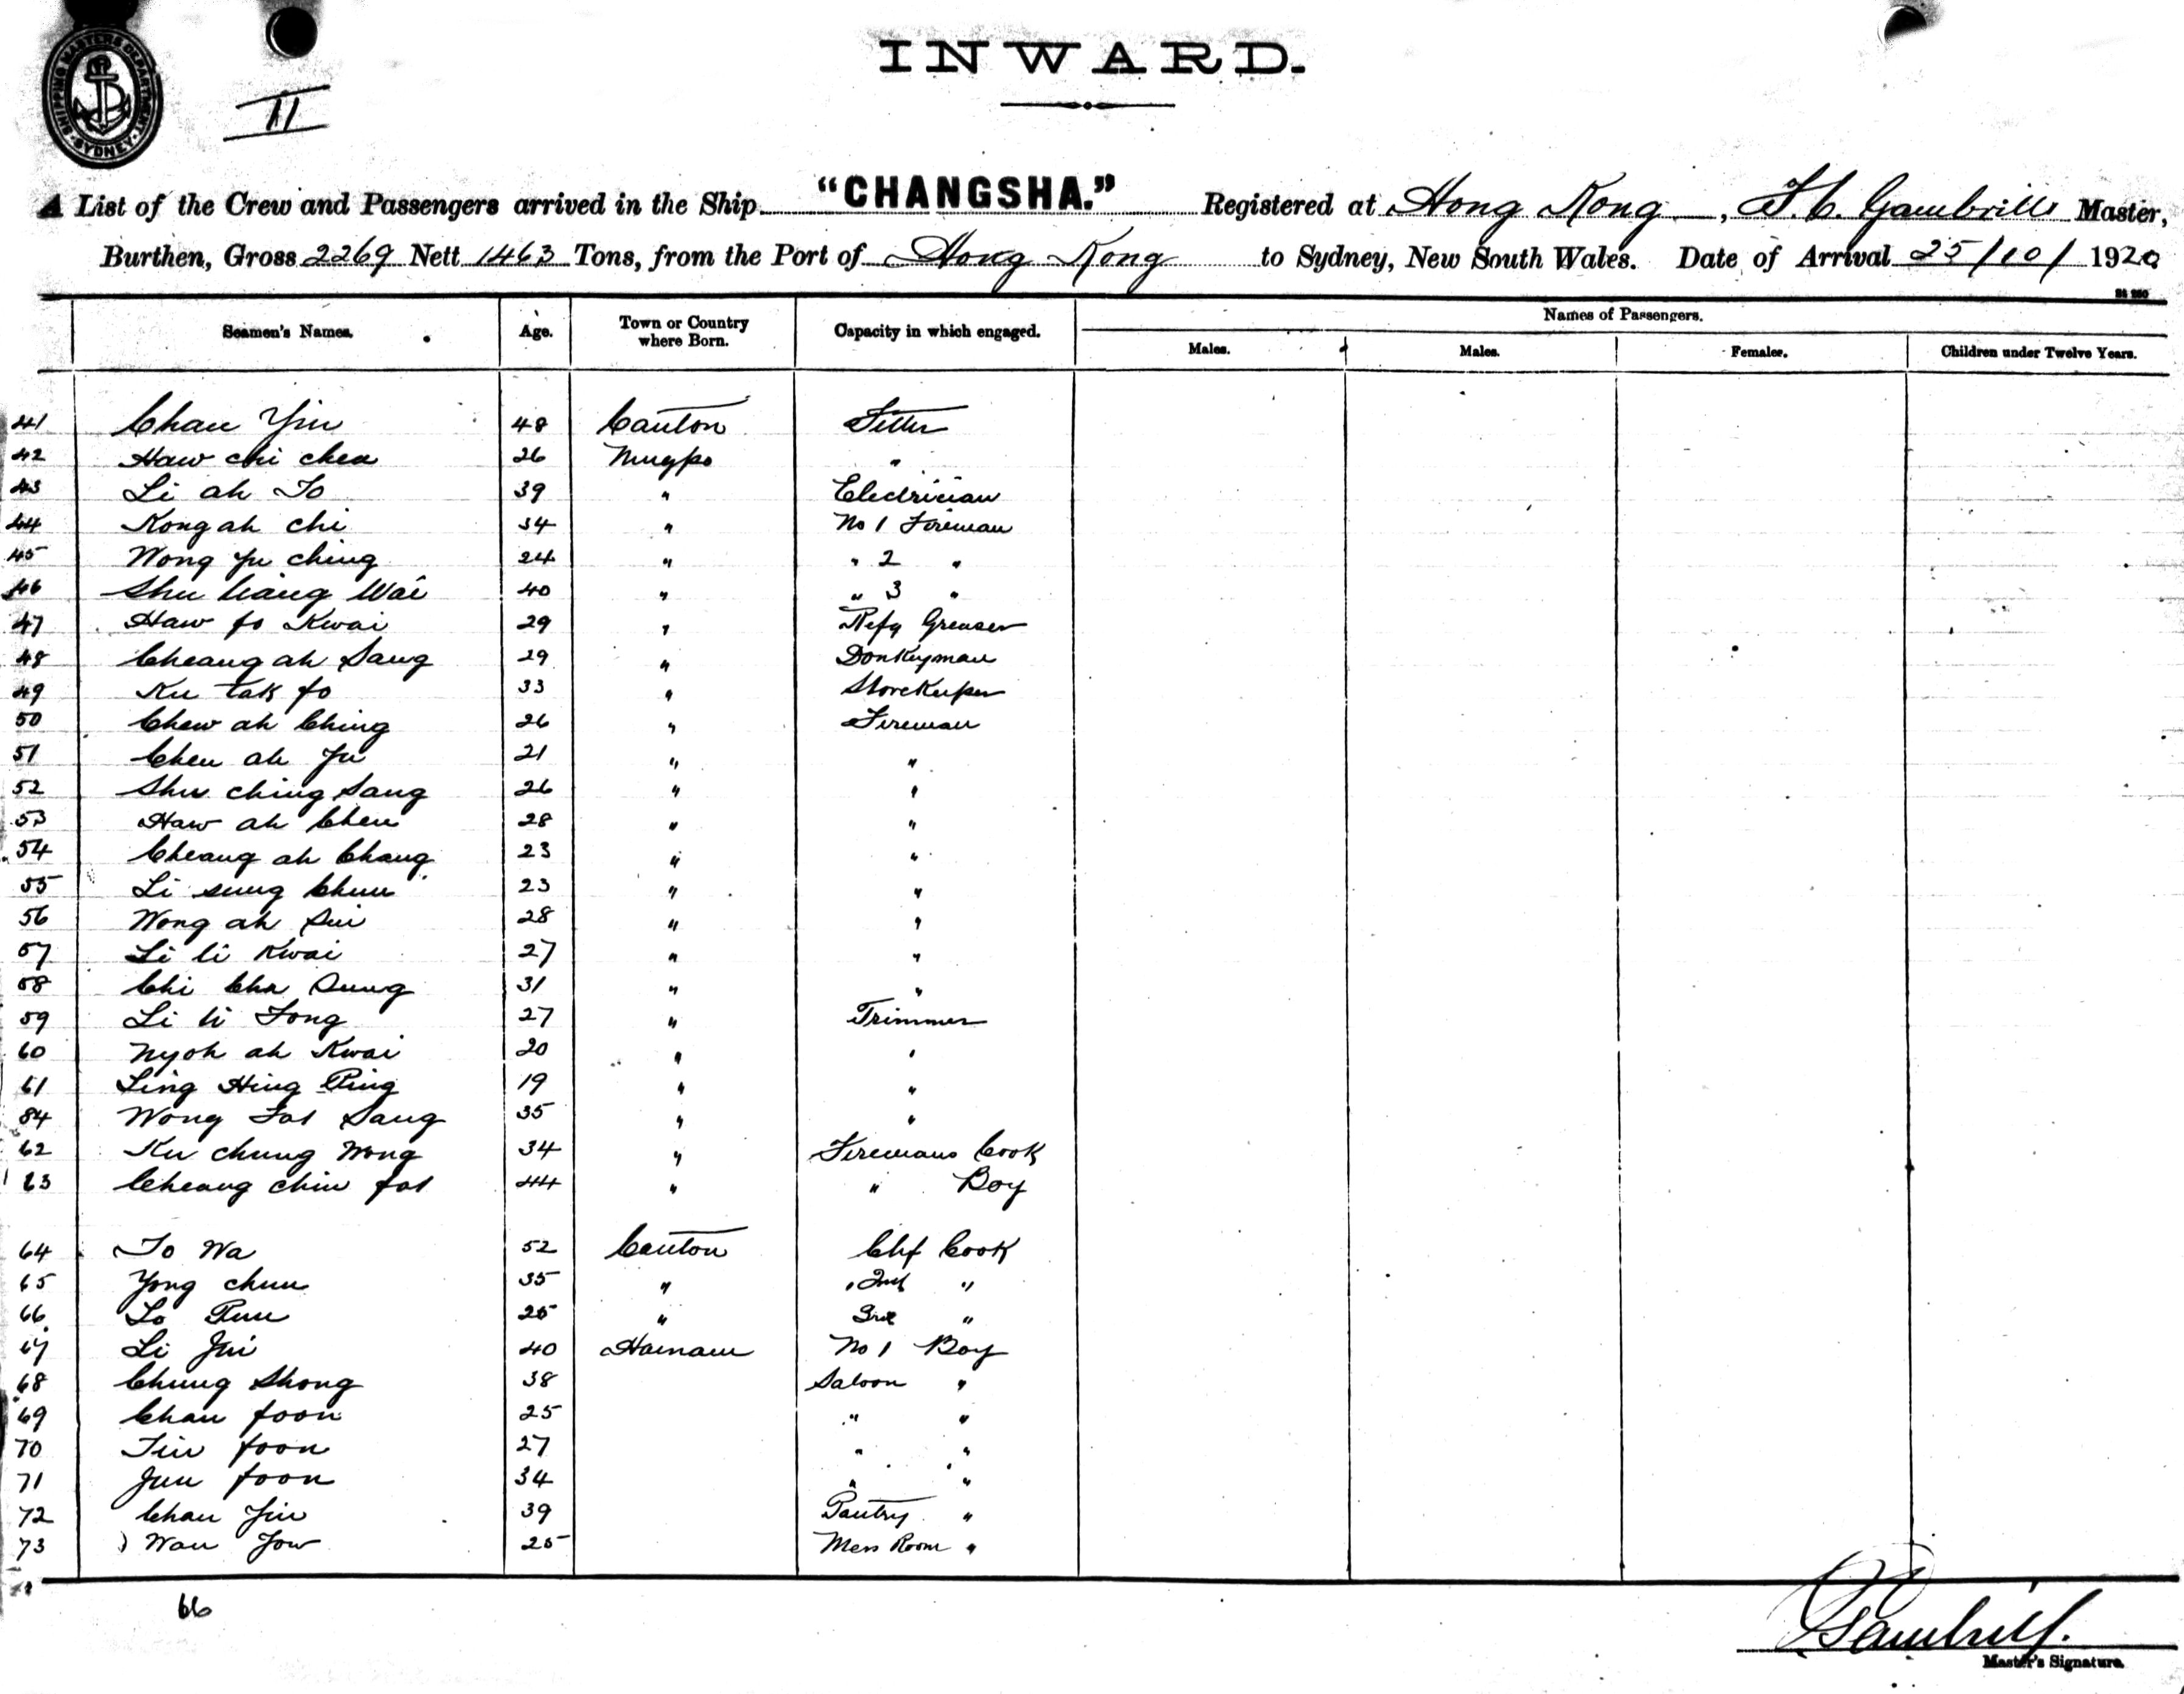 SHIPPING MASTERS DEPARTMENT
SYDNEY
II
INWARD.
A List of the Crew and Passengers arrived in the Ship "CHANGSHA." Registered at Hong Kong, Master,
Burthen, Gross 2269 Nett 1463 Tons, from the Port of Hong Kong to Sydney, New South Wales. Date of Arrival 25/10/1920
Names of Passengers.
Seamen's Names. Age. Town or Country where Born. Capacity in which engaged. Males. Males. Females. Children under Twelve Years.
41 Chan Yin 48 Canton Fitter
42 Haw chi chea 26 Ningpo "
43 Li ah To 39 " Electrician
44 Kong ah chi 34 " No 1 Fireman
45 Wong yu ching 24 " " 2 "
46 Shu liang Wai 40 " " 3 "
47 Haw fo Kwai 29 " Refg Greaser
48 Cheang ah Sang 29 " Donkeyman
49 Ku tak fo 33 " Storekeeper
50 Chew ah Ching 26 " Fireman
51 Chen ah Yu 21 " "
52 Shu ching Sang 26 " "
53 Haw ah Chen 28 " "
54 Cheang ah Chang 23 " "
55 Li sung Chun 23 " "
56 Wong ah Sui 28 " "
57 Li li Kwai 27 " "
58 Chi Cha Sung 31 " "
59 Li li Fong 27 " Trimmer
60 Nyoh ah Kwai 20 " "
61 Ling Hing Ping 19 " "
84 Wong Fat Sang 35 " "
62 Ku chung Wong 34 " Firemans Cook
63 Cheang chin fat 44 " " Boy
64 To Wa 52 Canton Chf Cook
65 Yong chun 35 " 2nd "
66 Lo Pun 25 " 3rd "
67 Li Jui 40 Hainam No 1 Boy
68 Chung Shong 38 Saloon "
69 Chan foon 25 " "
70 Tin foon 27 " "
71 Jun foon 34 " "
72 Chan Jin 39 Pantry "
73 Wan Jow 25 Mess Room "
66
Gambrill.
Master's Signature.